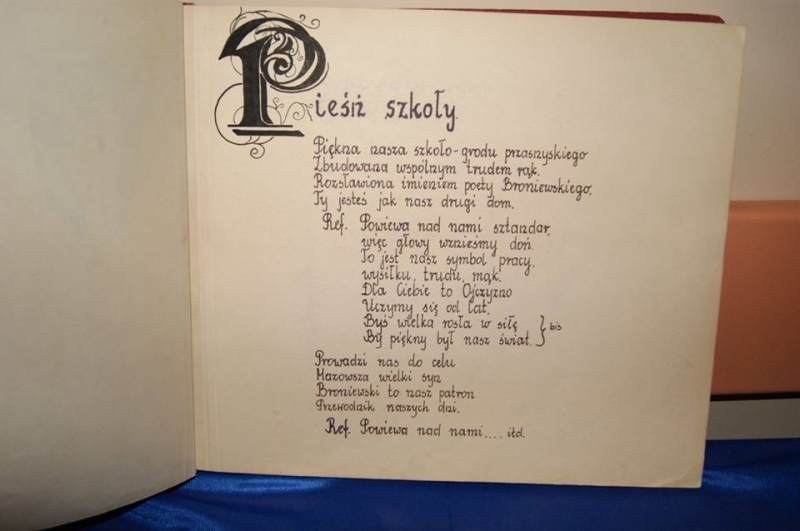 Pieśń szkoły.
Piękna nasza szkoło-grodu przasnyskiego
Zbudowana wspólnym trudem rąk.
Rozsławiona imieniem poety Broniewskiego,
Ty jesteś jak nasz drugi dom.
Ref. Powiewa nad nami sztandar,
więc głowy wznieśmy doń.
To jest nasz symbol pracy,
wysiłku, trudu, mąk.
Dla Ciebie to Ojczyzno
Uczymy się od lat,
Byś wielka rosła w siłę } bis
By piękny był nasz świat.
Prowadzi nas do celu
Mazowsza wielki syn
Broniewski to nasz patron
Przewodnik naszych dni.
Ref. Powiewa nad nami .... itd.